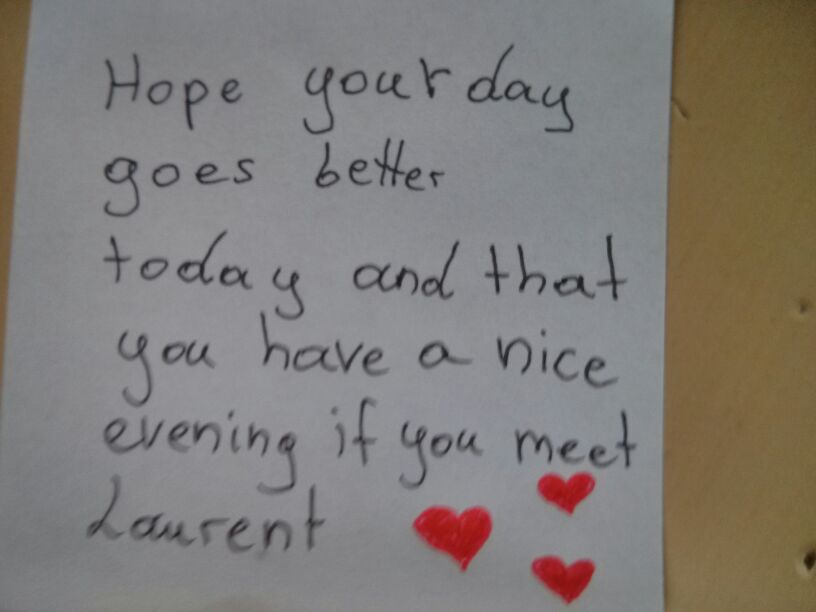 Hope your day
goes better
today and that
you have a nice
evening if you meet
Laurent